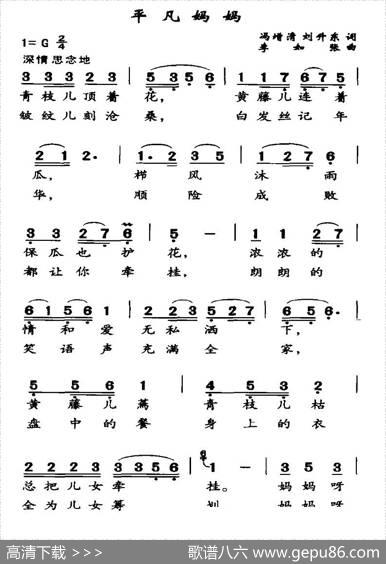 平凡妈妈
1=G 2/4
冯增清 刘升东 词
李如张 曲
深情思念地
3 3 2 2 3 | 5 5 3 5 6 | 1 2 1 7 6 |
青枝儿顶着花，黄藤儿连着
皱纹儿刻沧桑，白发丝记年
2 1 2· | 1· 2 3 5 | 1 2 7 6 |
瓜，栉风沐雨
华，顺险成败
3 3 2 7 6 | 5 － | 1 1 2 7 |
保瓜也护花，浓浓的
都让你牵挂，朗朗的
6 1 5 6 1 | 2 2 3 5 2 7 | 6 5 6· |
情和爱无私洒下，
笑语声充满全家，
5 5 6 1 | 4 5 3 2 |
黄藤儿蔫青枝儿枯
盘中的餐身上的衣
2 2 2 2 3 | 3 3 5 5 6 | 1 － | 3 5 3 |
总把儿女牵挂。妈妈呀
全为儿女筹划 妈妈呀
高清下载 >>>
歌谱八六 www.gepu86.com